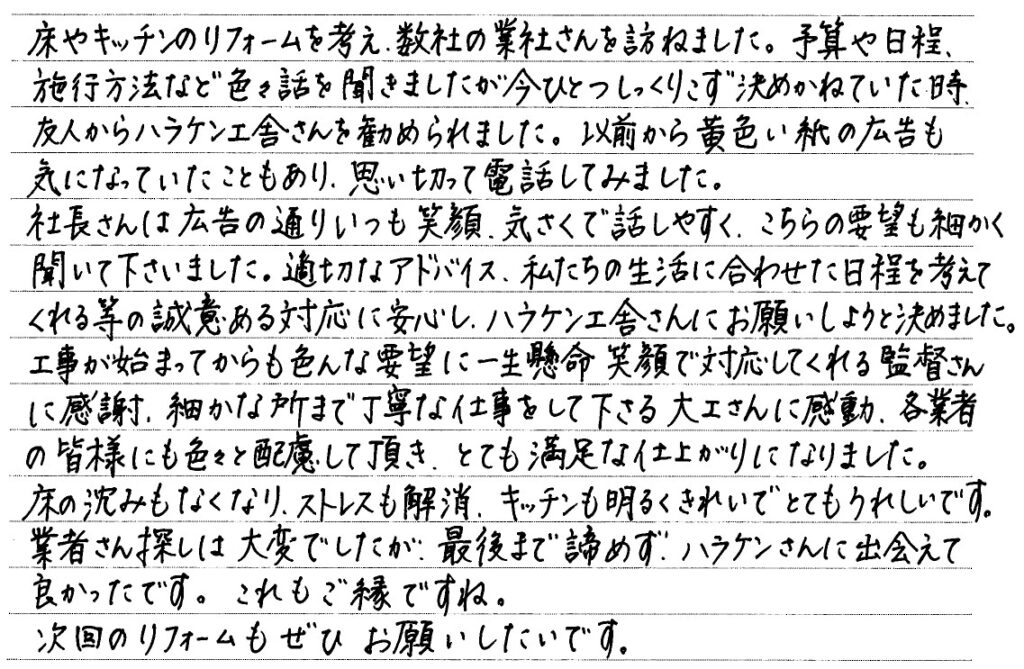 床やキッチンのリフォームを考え、数社の業社さんを訪ねました。予算や日程、
施行方法など色々話を聞きましたが今ひとつしっくりこず決めかねていた時、
友人からハラケン工舎さんを勧められました。以前から黄色い紙の広告も
気になっていたこともあり、思い切って電話してみました。
社長さんは広告の通りいつも笑顔、気さくで話しやすく、こちらの要望も細かく
聞いて下さいました。適切なアドバイス、私たちの生活に合わせた日程を考えて
くれる等の誠意ある対応に安心し、ハラケン工舎さんにお願いしようと決めました。
工事が始まってからも色んな要望に一生懸命笑顔で対応してくれる監督さん
に感謝、細かな所まで丁寧な仕事をして下さる大工さんに感動、各業者
の皆様にも色々と配慮して頂き、とても満足な仕上がりになりました。
床の沈みもなくなり、ストレスも解消、キッチンも明るくきれいでとてもうれしいです。
業者さん探しは大変でしたが、最後まで諦めず、ハラケンさんに出会えて
良かったです。これもご縁ですね。
次回のリフォームもぜひお願いしたいです。